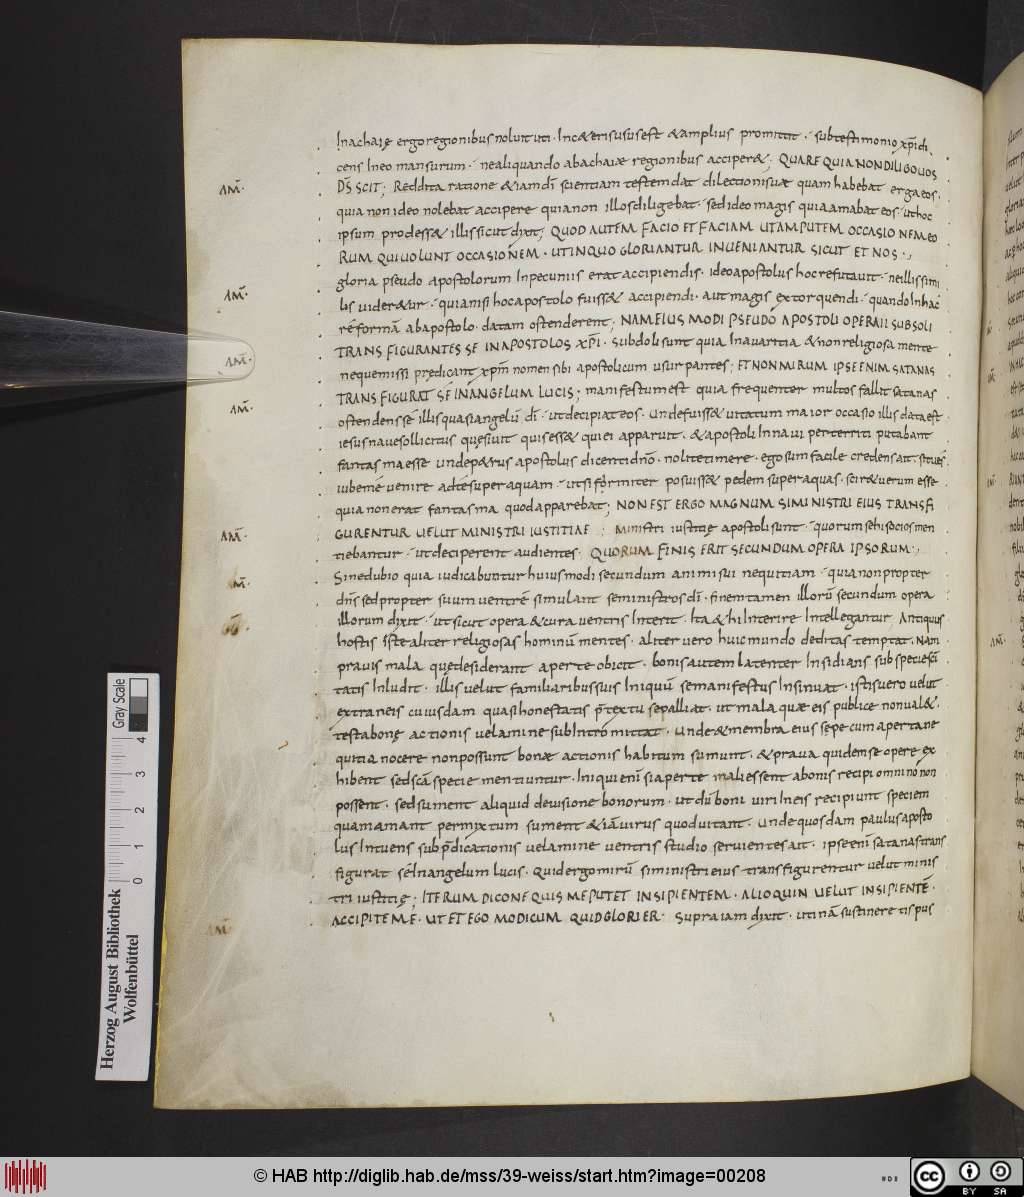 In achaię ergo regionibus noluit uti · Inc&eris usus est & amplius promittit · sub testimonio xp̄i di
cens In eo mansurum · ne aliquando ab achaiæ regionibus acciper&; QUARE QUIA NON DILIGO UOS
AM̄· D̄S SCIT; Reddita ratione & iam d̄i scientiam testem dat dilectionis uæ quam habebat erga eos ·
quia non ideo nolebat accipere quia non illos diligebat · sed ideo magis quia amabat eos · ut hoc
ipsum prodess& illis sicut dixit; QUOD AUTEM FACIO ET FACIAM UT AMPUTEM OCCASIONEM EO
RUM QUI UOLUNT OCCASIONEM · UT IN QUO GLORIANTUR INUENIANTUR SICUT ET NOS ·,
gloria pseudo apostolorum In pecuniis erat accipiendis · ideo apostolus hoc refutauit · ne illis simi
AM̄· lis uider&ur · quia nisi hoc apostolo fuiss& accipiendi · aut magis extorquendi · quando In hac
rē formā ab apostolo datam ostenderent; NAM EIUS MODI PSEUDO APOSTOLI OPERAII SUBDOLI
TRANSFIGURANTES SE IN APOSTOLOS XP̄I · subdoli sunt quia In auaritia & non religiosa mente
AM̄· neque missi predicant xp̄m nomen sibi apostolicum usurpantes; ET NON MIRUM IPSE ENIM SATANAS
TRANSFIGURAT SE IN ANGELUM LUCIS; manifestum est quia frequenter multos fallit satanas
AM̄· ostendens se illis quasi angelū d̄i · ut decipiat eos · unde fuiss& uitatum maior occasio illis data est
iesus naue sollicitus quęsiuit quis ess& qui ei apparuit · & apostoli In naui perterriti putabant
fantasma esse unde p&rus apostolus dicenti dn̄o · nolite timere · ego sum facile credens ait · si tu es
iube me uenire ad te super aquam · ut si firmiter posuiss& pedem super aquas · scir& uerum esse
quia non erat fantasma quod apparebat; NON EST ERGO MAGNUM SI MINISTRI EIUS TRANSFI
AM̄· GURENTUR UELUT MINISTRI IUSTITIAE; Ministri iustitię apostoli sunt · quorum se hi socios men
tiebantur · ut deciperent audientes · QUORUM FINIS ERIT SECUNDUM OPERA IPSORUM ·,
AM̄· Sine dubio quia iudicabuntur huiusmodi secundum animi sui nequitiam · quia non propter
dn̄s sed propter suum uentrē simulant se ministros d̄i · finem tamen illorū secundum opera
illorum dixit · ut sicut opera & cura uentris Interit · Ita & hi Interire Intellegantur Antiquus
hostis Iste aliter religiosas hominū mentes · aliter uero huic mundo deditas temptat · Nam
prauis mala quę desiderant aperte obicit · bonis autem latenter Insidians sub specie sc̄i
tatis Inludit · illis uelut familiaribus suis Iniquū se manifestus Insinuat · istis uero uelut
extraneis cuiusdam quasi honestatis p̄textu se palliat · ut mala quæ eis publice non ual& ·
testa bonę actionis uelamine subIntromittat · Unde & membra eius sepe cum aperta ne
quitia nocere non possunt bonæ actionis habitum sumunt · & praua quidem se opere ex
hibent sed sc̄a specie mentiuntur · Iniqui enī si aperte mali essent a bonis recipi omnino non
possent · sed sument aliquid de uisione bonorum · ut dū boni uiri In eis recipiunt speciem
quam amant permixtum sument & iā uirus quod uitant · Unde quosdam paulus aposto
lus Intuens sub p̄dicationis uelamine uentris studio seruientes ait · ipse enī satanas trans
figurat se In angelum lucis · Quid ergo mirū si ministri eius transfigurentur uelut minis
tri iustitię; ITERUM DICO NE QUIS ME PUTET INSIPIENTEM · ALIOQUIN UELUT INSIPIENTĒ ·
AM̄· ACCIPITE ME · UT ET EGO MODICUM QUID GLORIER · Supra iam dixit · utinā sustineretis pus
Herzog August Bibliothek
Wolfenbüttel
Gray Scale
0 1 2 3 4
© HAB http://diglib.hab.de/mss/39-weiss/start.htm?image=00208
CC BY SA